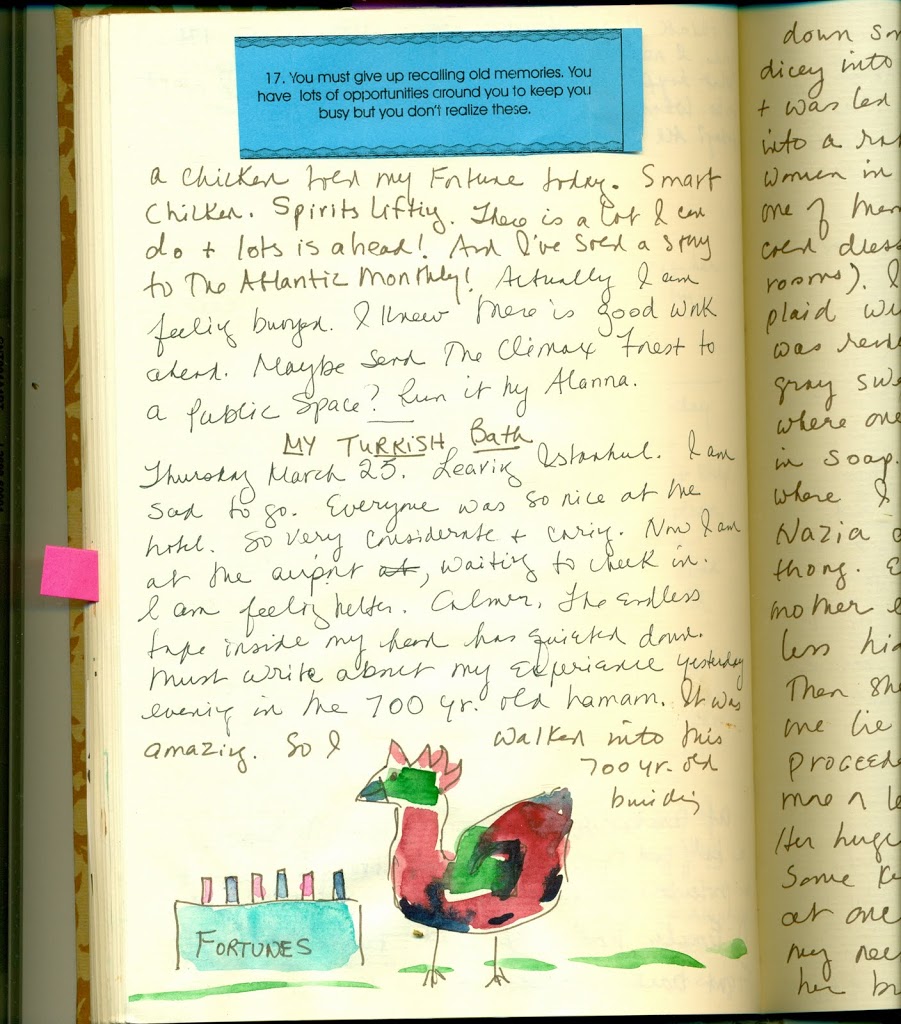 17. You must give up recalling old memories. You
have lots of opportunities around you to keep you
busy but you don't realize these.
a chicken told my Fortune today. Smart
Chicken. Spirits Lifting. There is a lot I can
do + lots is ahead! And I've sold a story
to The Atlantic Monthly! Actually I am
feeling buoyed. I knew there is good work
ahead. Maybe send The Climax Forest to
a Public Space? Run it by Alanna.
MY TURKISH Bath
Thursday March 25. Leaving Istanbul. I am
sad to go. Everyone was so nice at the
hotel. So very considerate + caring. Now I am
at the airport at, waiting to check in.
I am feeling better. Calmer. The endless
tape inside my head has quieted down.
Must write about my experience yesterday
evening in the 700 yr. old hamam. It was
amazing. So I walked into this
700 yr. old
building
FORTUNES
down
dicey into
+ was led
into a
women in
one of
rooms). I
plaid
was
gray
where one
in soap.
where I
Nazia
thong.
mother
less
Then she
me lie
proceed
Her huge
Some
at one
my
her